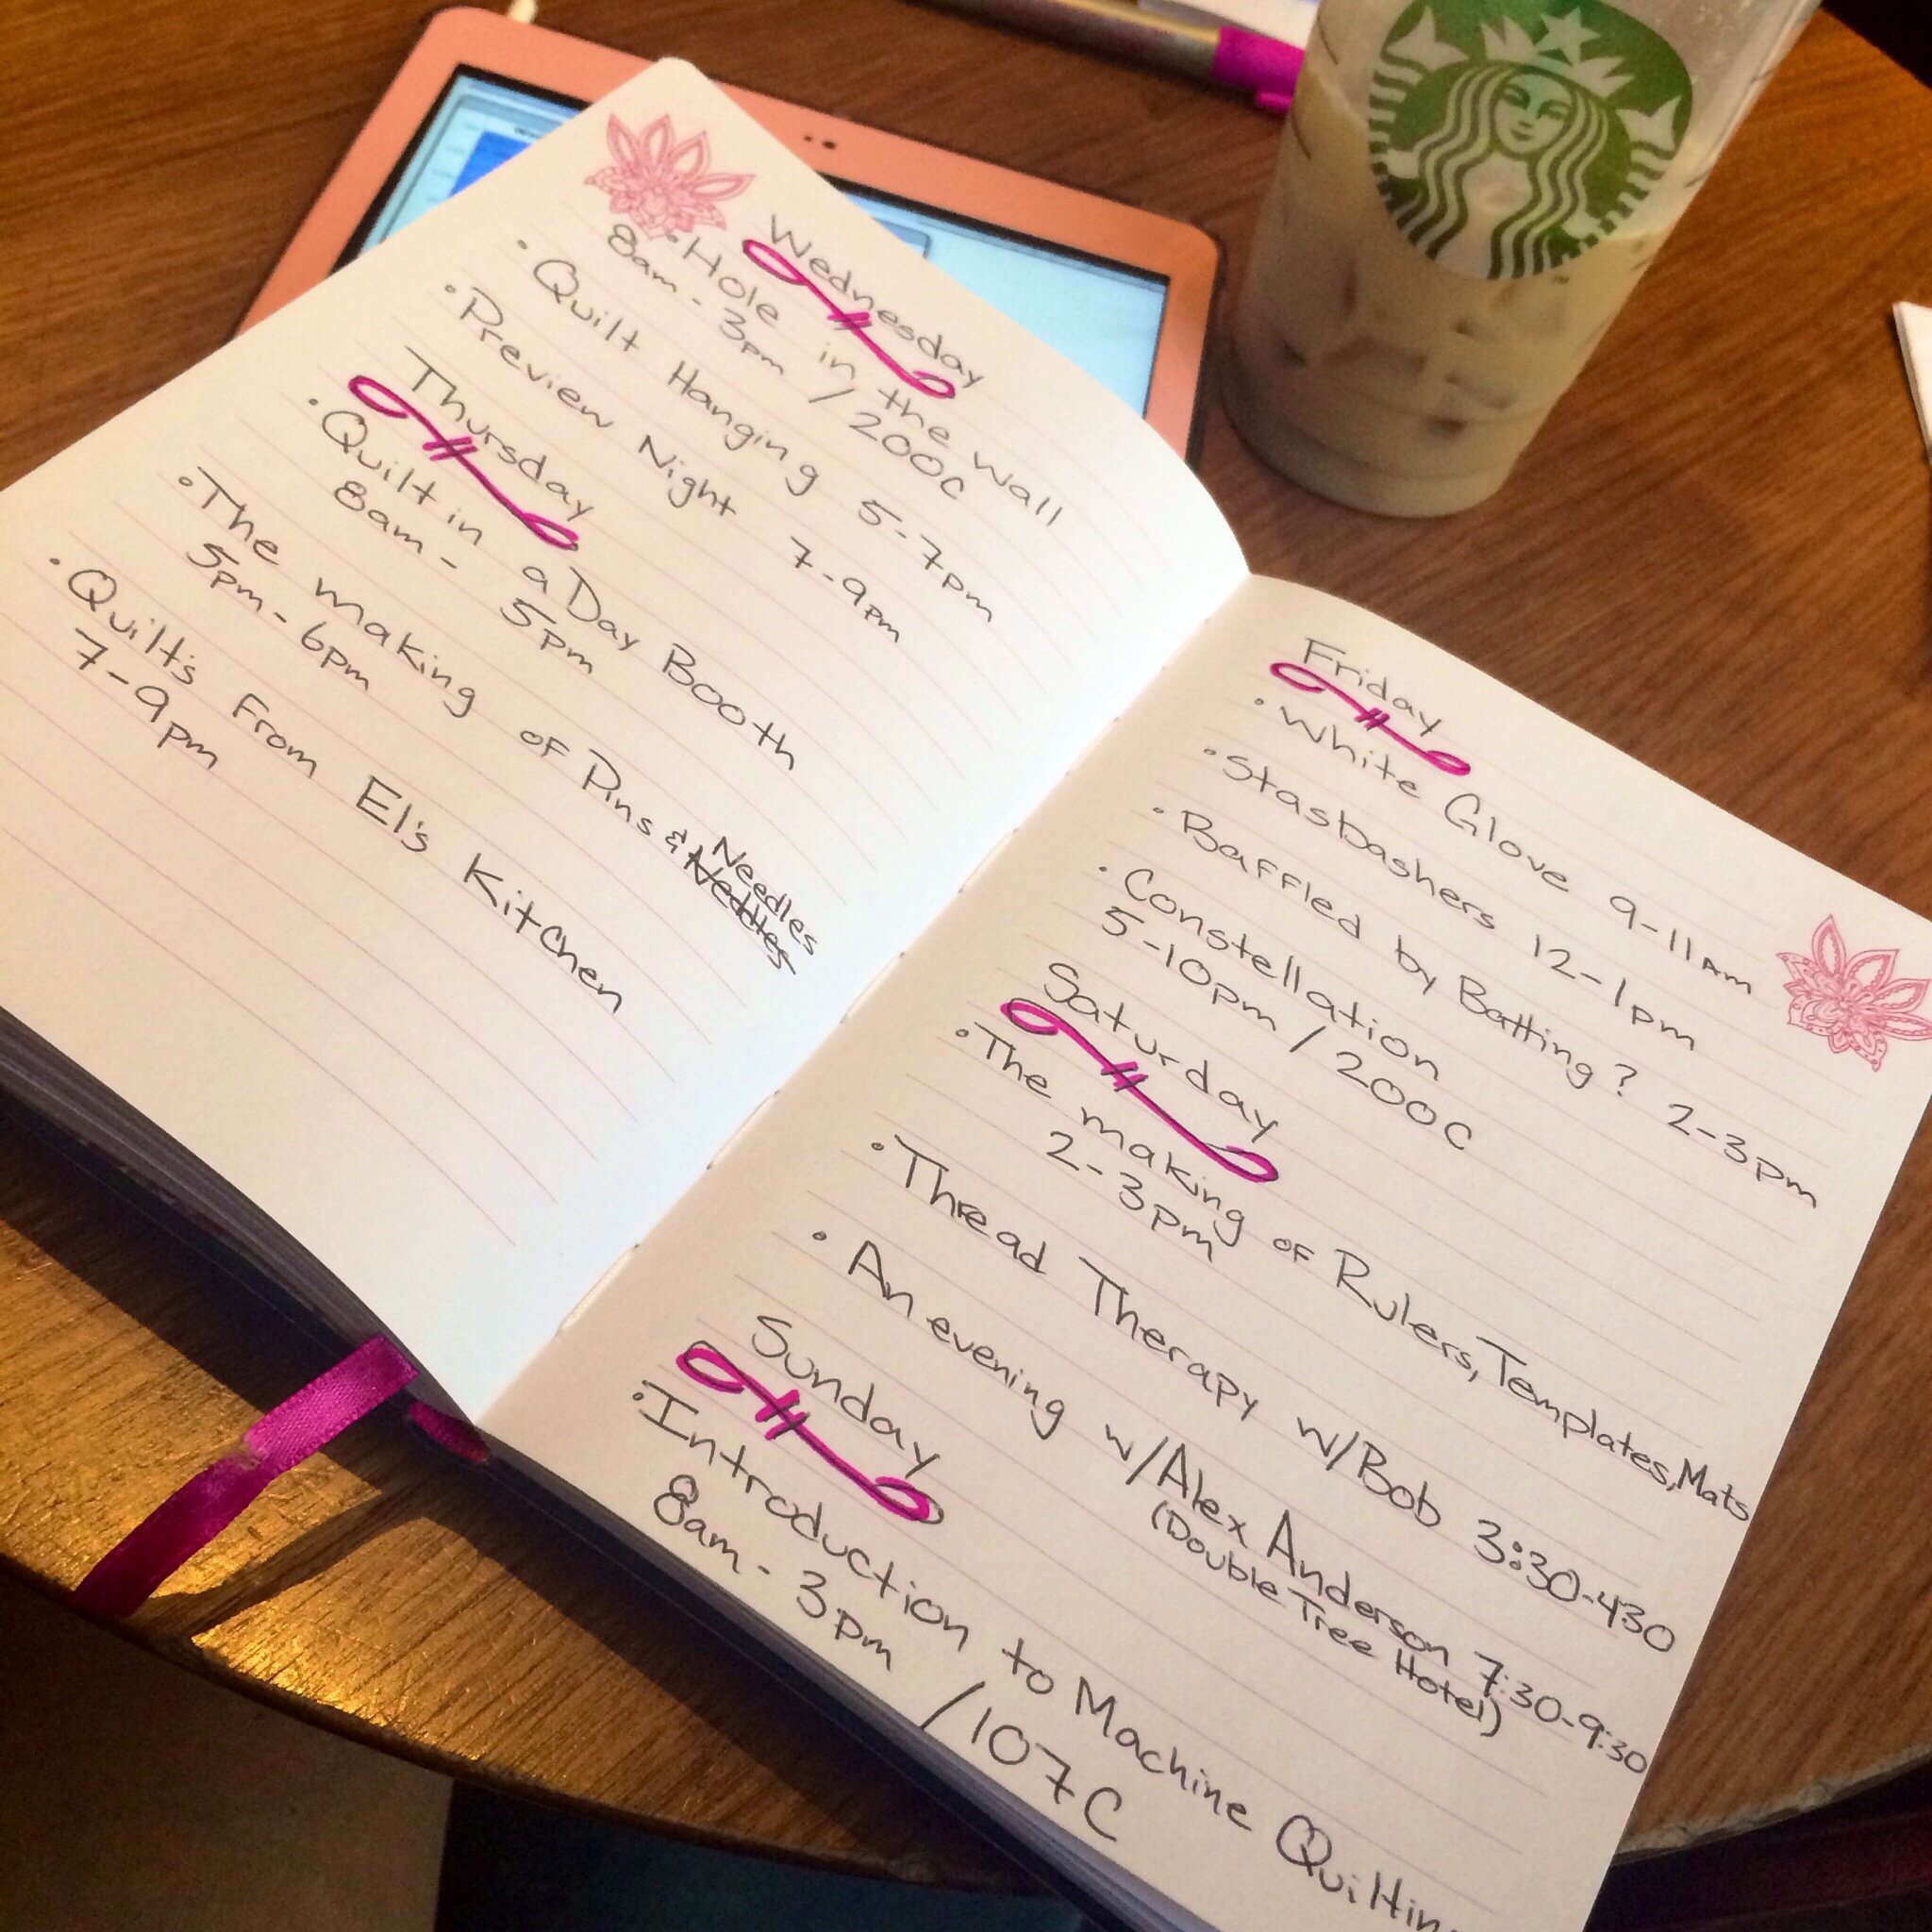 Wednesday
• Hole in the wall
8am - 3pm / 200C
• Quilt Hanging 5-7pm
• Preview Night 7-9pm
Thursday
• Quilt in a Day Booth
8am - 5pm
• The making of Pins & Needles
Neddles
5pm - 6pm
• Quilt's From El's Kitchen
7-9pm
Friday
• White Glove 9-11am
• Stasbashers 12-1pm
• Baffled by Batting? 2-3pm
• Constellation
5-10pm / 200C
Saturday
• The making of Rulers, Templates, Mats
2-3pm
• Thread Therapy w/Bob 3:30-430
• An evening w/Alex Anderson 7:30-9:30
(Double Tree Hotel)
Sunday
• Introduction to Machine Quiltin
8am - 3pm / 107C